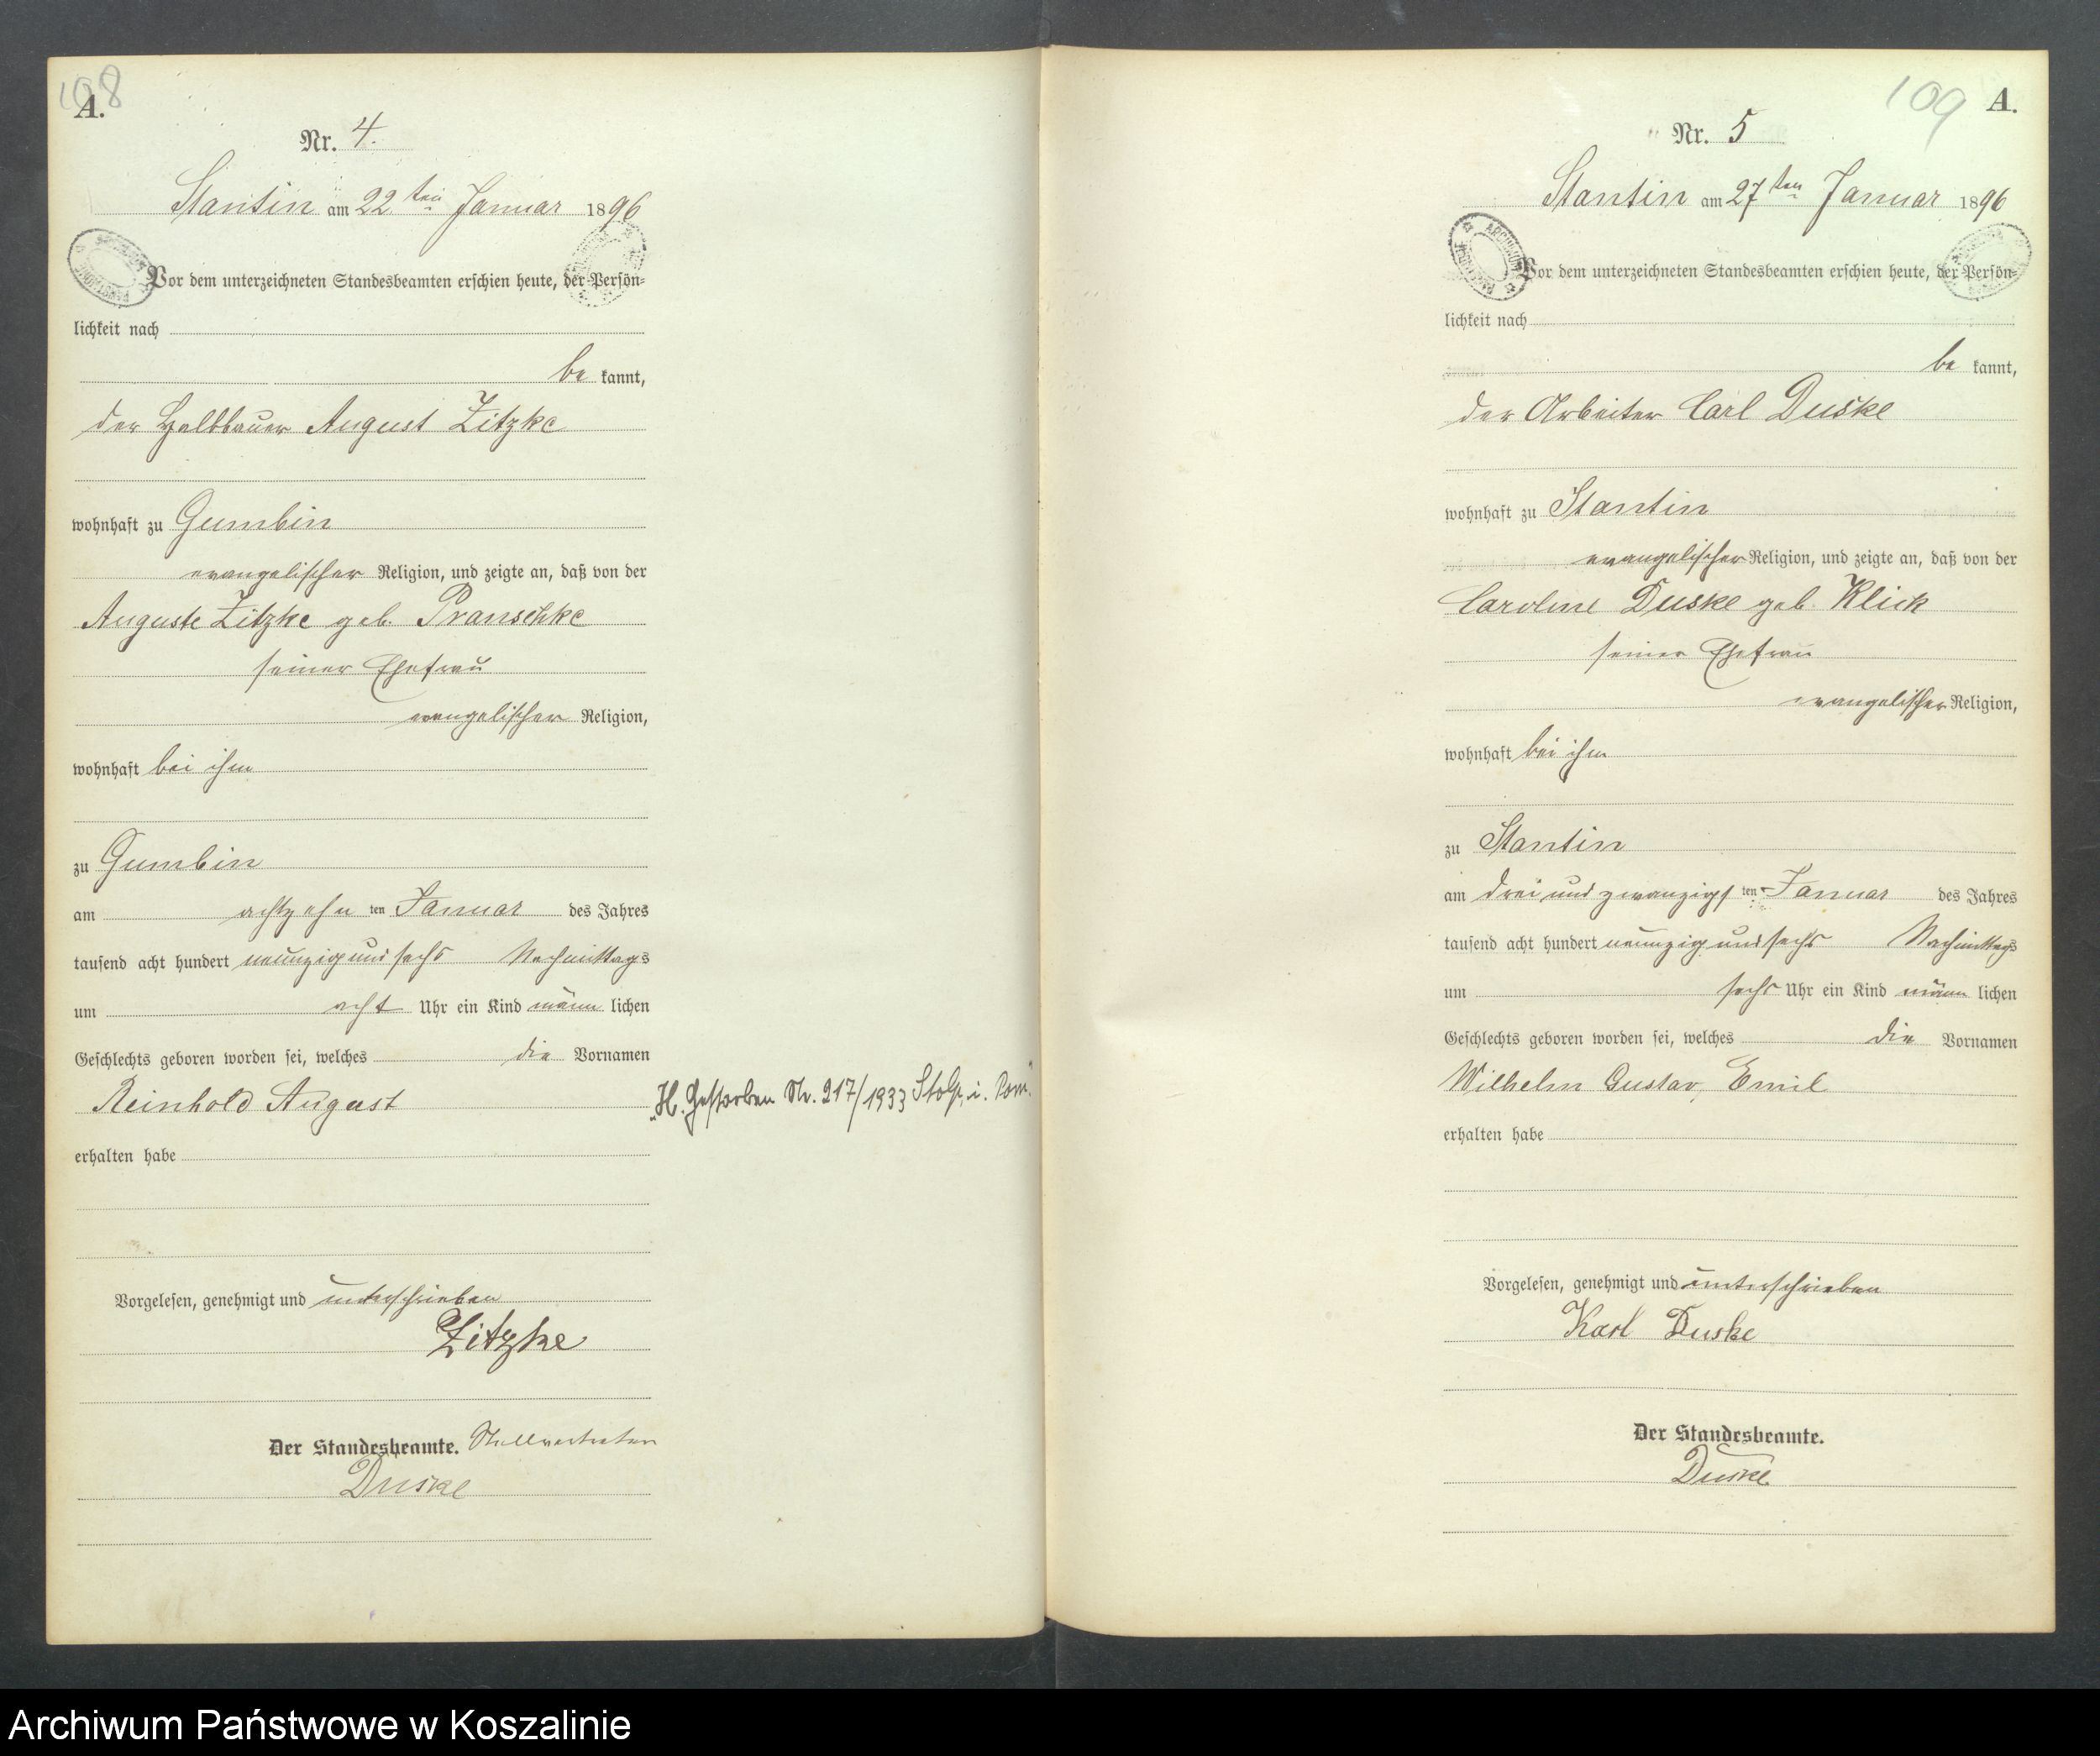 108
A.
Nr. 4.
Stantin am 22ten Januar 1896
Vor dem unterzeichneten Standesbeamten erschien heute, der Persön-
lichkeit nach
be kannt,
der Halbbauer August Zitzke
wohnhaft zu Gumbin
evangelischer Religion, und zeigte an, daß von der
Auguste Zitzke geb. Pranschke
seiner Ehefrau
evangelischer Religion,
wohnhaft bei ihm
zu Gumbin
am achtzehn ten Januar des Jahres
tausend acht hundert neunzig und sechs Nachmittags
um acht Uhr ein Kind männ lichen
Geschlechts geboren worden sei, welches die Vornamen
Reinhold August
erhalten habe
Vorgelesen, genehmigt und unterschrieben
Zitzke
Der Standesbeamte. Stellvertreter
Duske
"H. Gestorben Nr. 217/1933 Stolp i. Pom."
109
A.
Nr. 5
Stantin am 27ten Januar 1896
Vor dem unterzeichneten Standesbeamten erschien heute, der Persön-
lichkeit nach
be kannt,
der Arbeiter Carl Duske
wohnhaft zu Stantin
evangelischer Religion, und zeigte an, daß von der
Caroline Duske geb. Klick
seiner Ehefrau
evangelischer Religion,
wohnhaft bei ihm
zu Stantin
am drei und zwanzigs ten Januar des Jahres
tausend acht hundert neunzig und sechs Nachmittags
um sechs Uhr ein Kind männ lichen
Geschlechts geboren worden sei, welches die Vornamen
Wilhelm Gustav, Emil
erhalten habe
Vorgelesen, genehmigt und unterschrieben
Karl Duske
Der Standesbeamte.
Duske
Archiwum Państwowe w Koszalinie